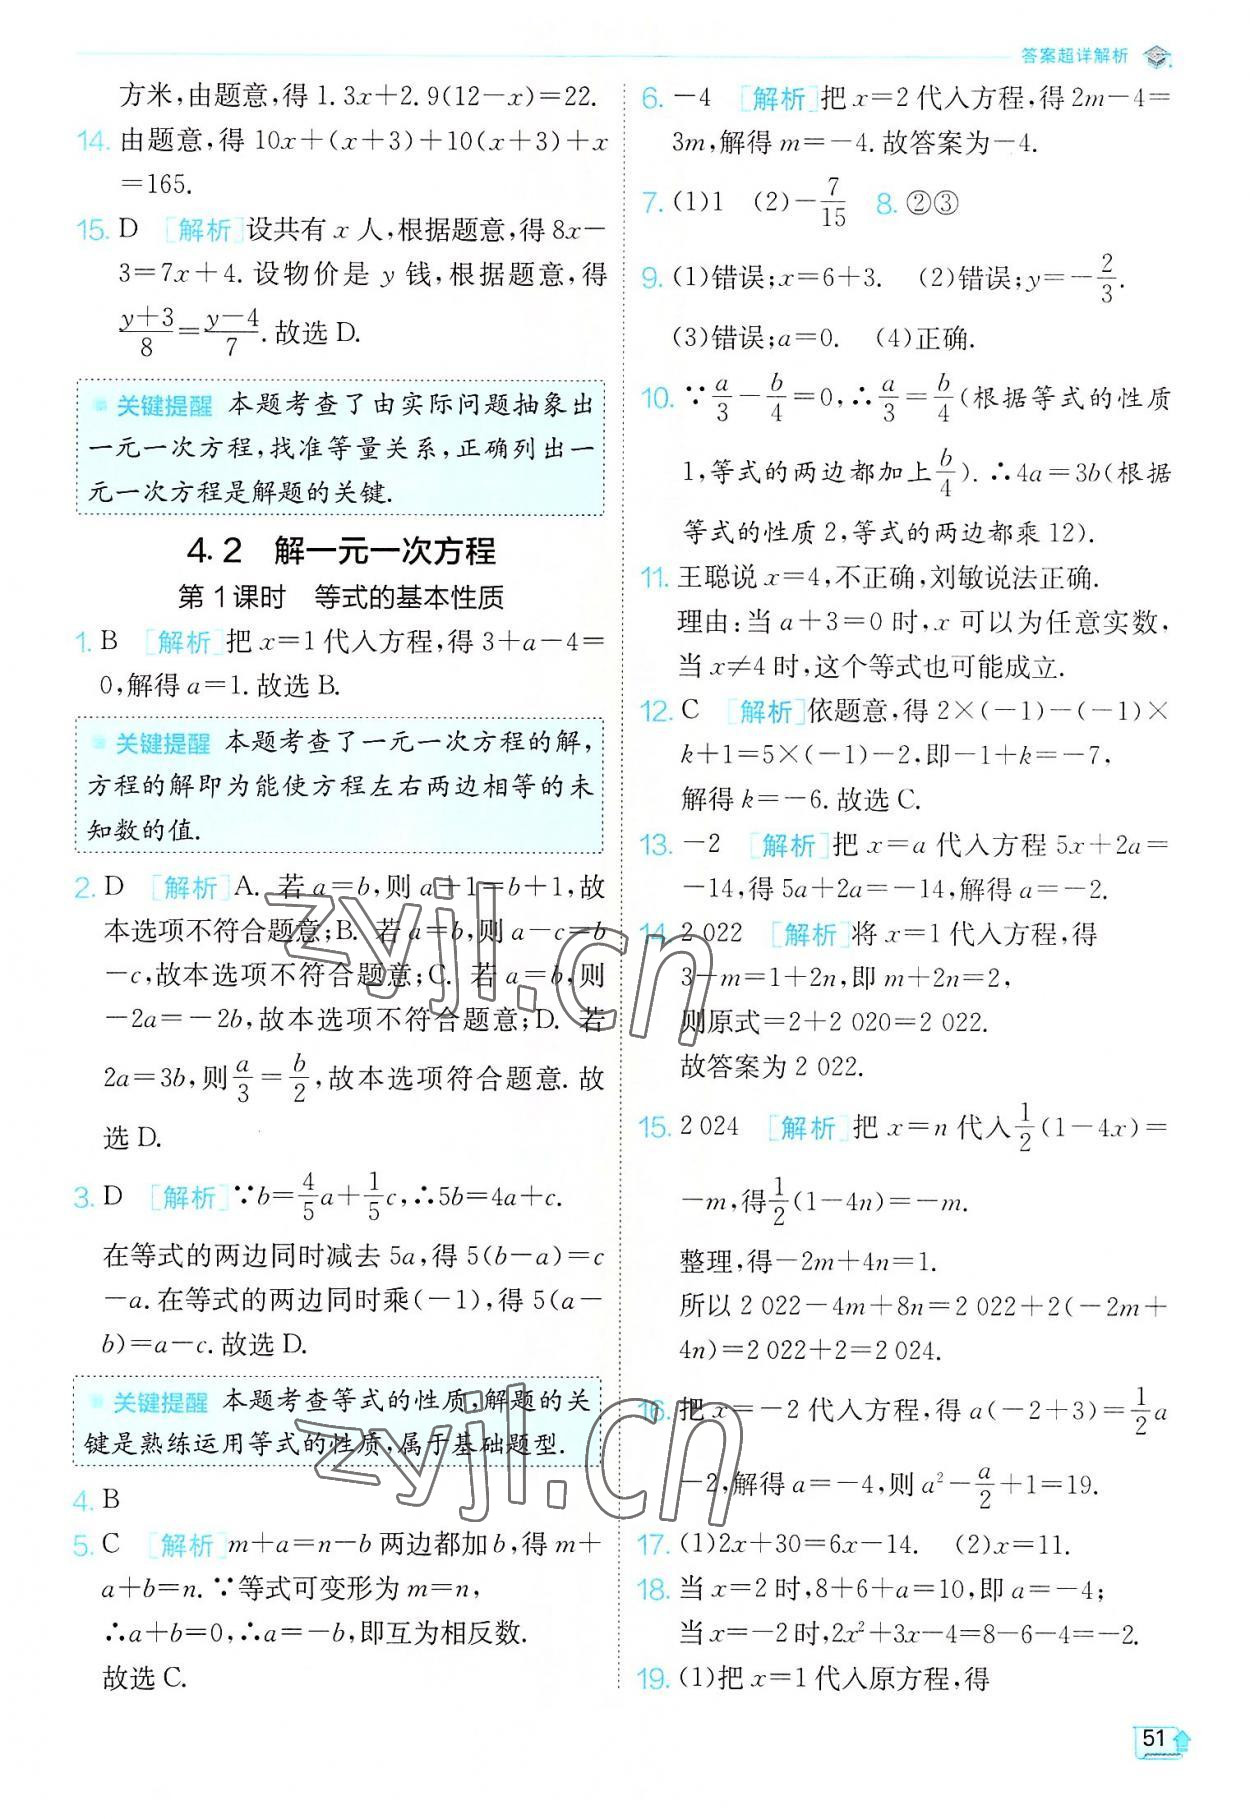 答案超详解析
方米,由题意,得 1.3x+2.9(12-x)=22.
14. 由题意,得 10x+(x+3)+10(x+3)+x
=165.
15. D [解析]设共有 x 人,根据题意,得 8x-
3=7x+4. 设物价是 y 钱,根据题意,得
(y+3)/8=(y-4)/7.故选 D.
关键提醒 本题考查了由实际问题抽象出
一元一次方程,找准等量关系,正确列出一
元一次方程是解题的关键.
4.2 解一元一次方程
第 1 课时 等式的基本性质
1. B [解析]把 x=1 代入方程,得 3+a-4=
0,解得 a=1.故选 B.
关键提醒 本题考查了一元一次方程的解,
方程的解即为能使方程左右两边相等的未
知数的值.
2. D [解析]A. 若 a=b,则 a+1=b+1,故
本选项不符合题意;B. 若 a=b,则 a-c=b
-c,故本选项不符合题意;C. 若 a=b,则
-2a=-2b,故本选项不符合题意;D. 若
2a=3b,则 a/3=b/2,故本选项符合题意.故
选 D.
3. D [解析]∵b=4/5a+1/5c,∴5b=4a+c.
在等式的两边同时减去 5a,得 5(b-a)=c
-a.在等式的两边同时乘(-1),得 5(a-
b)=a-c.故选 D.
关键提醒 本题考查等式的性质,解题的关
键是熟练运用等式的性质,属于基础题型.
4. B
5. C [解析]m+a=n-b 两边都加 b,得 m+
a+b=n.∵等式可变形为 m=n,
∴a+b=0,∴a=-b,即互为相反数.
故选 C.
6. -4 [解析]把 x=2 代入方程,得 2m-4=
3m,解得 m=-4.故答案为-4.
7. (1)1 (2)-7/15 8. ②③
9. (1)错误;x=6+3. (2)错误;y=-2/3.
(3)错误;a=0. (4)正确.
10. ∵a/3-b/4=0,∴a/3=b/4(根据等式的性质
1,等式的两边都加上b/4).∴4a=3b(根据
等式的性质 2,等式的两边都乘 12).
11. 王聪说 x=4,不正确,刘敏说法正确.
理由:当 a+3=0 时,x 可以为任意实数,
当 x≠4 时,这个等式也可能成立.
12. C [解析]依题意,得 2×(-1)-(-1)×
k+1=5×(-1)-2,即-1+k=-7,
解得 k=-6.故选 C.
13. -2 [解析]把 x=a 代入方程 5x+2a=
-14,得 5a+2a=-14,解得 a=-2.
14. 2 022 [解析]将 x=1 代入方程,得
3-m=1+2n,即 m+2n=2,
则原式=2+2 020=2 022.
故答案为 2 022.
15. 2 024 [解析]把 x=n 代入1/2(1-4x)=
-m,得1/2(1-4n)=-m.
整理,得-2m+4n=1.
所以 2 022-4m+8n=2 022+2(-2m+
4n)=2 022+2=2 024.
16. 把 x=-2 代入方程,得 a(-2+3)=1/2a
-2,解得 a=-4,则 a²-a/2+1=19.
17. (1)2x+30=6x-14. (2)x=11.
18. 当 x=2 时,8+6+a=10,即 a=-4;
当 x=-2时,2x²+3x-4=8-6-4=-2.
19. (1)把 x=1 代入原方程,得
zyjl.cn
zyjl.cn
51